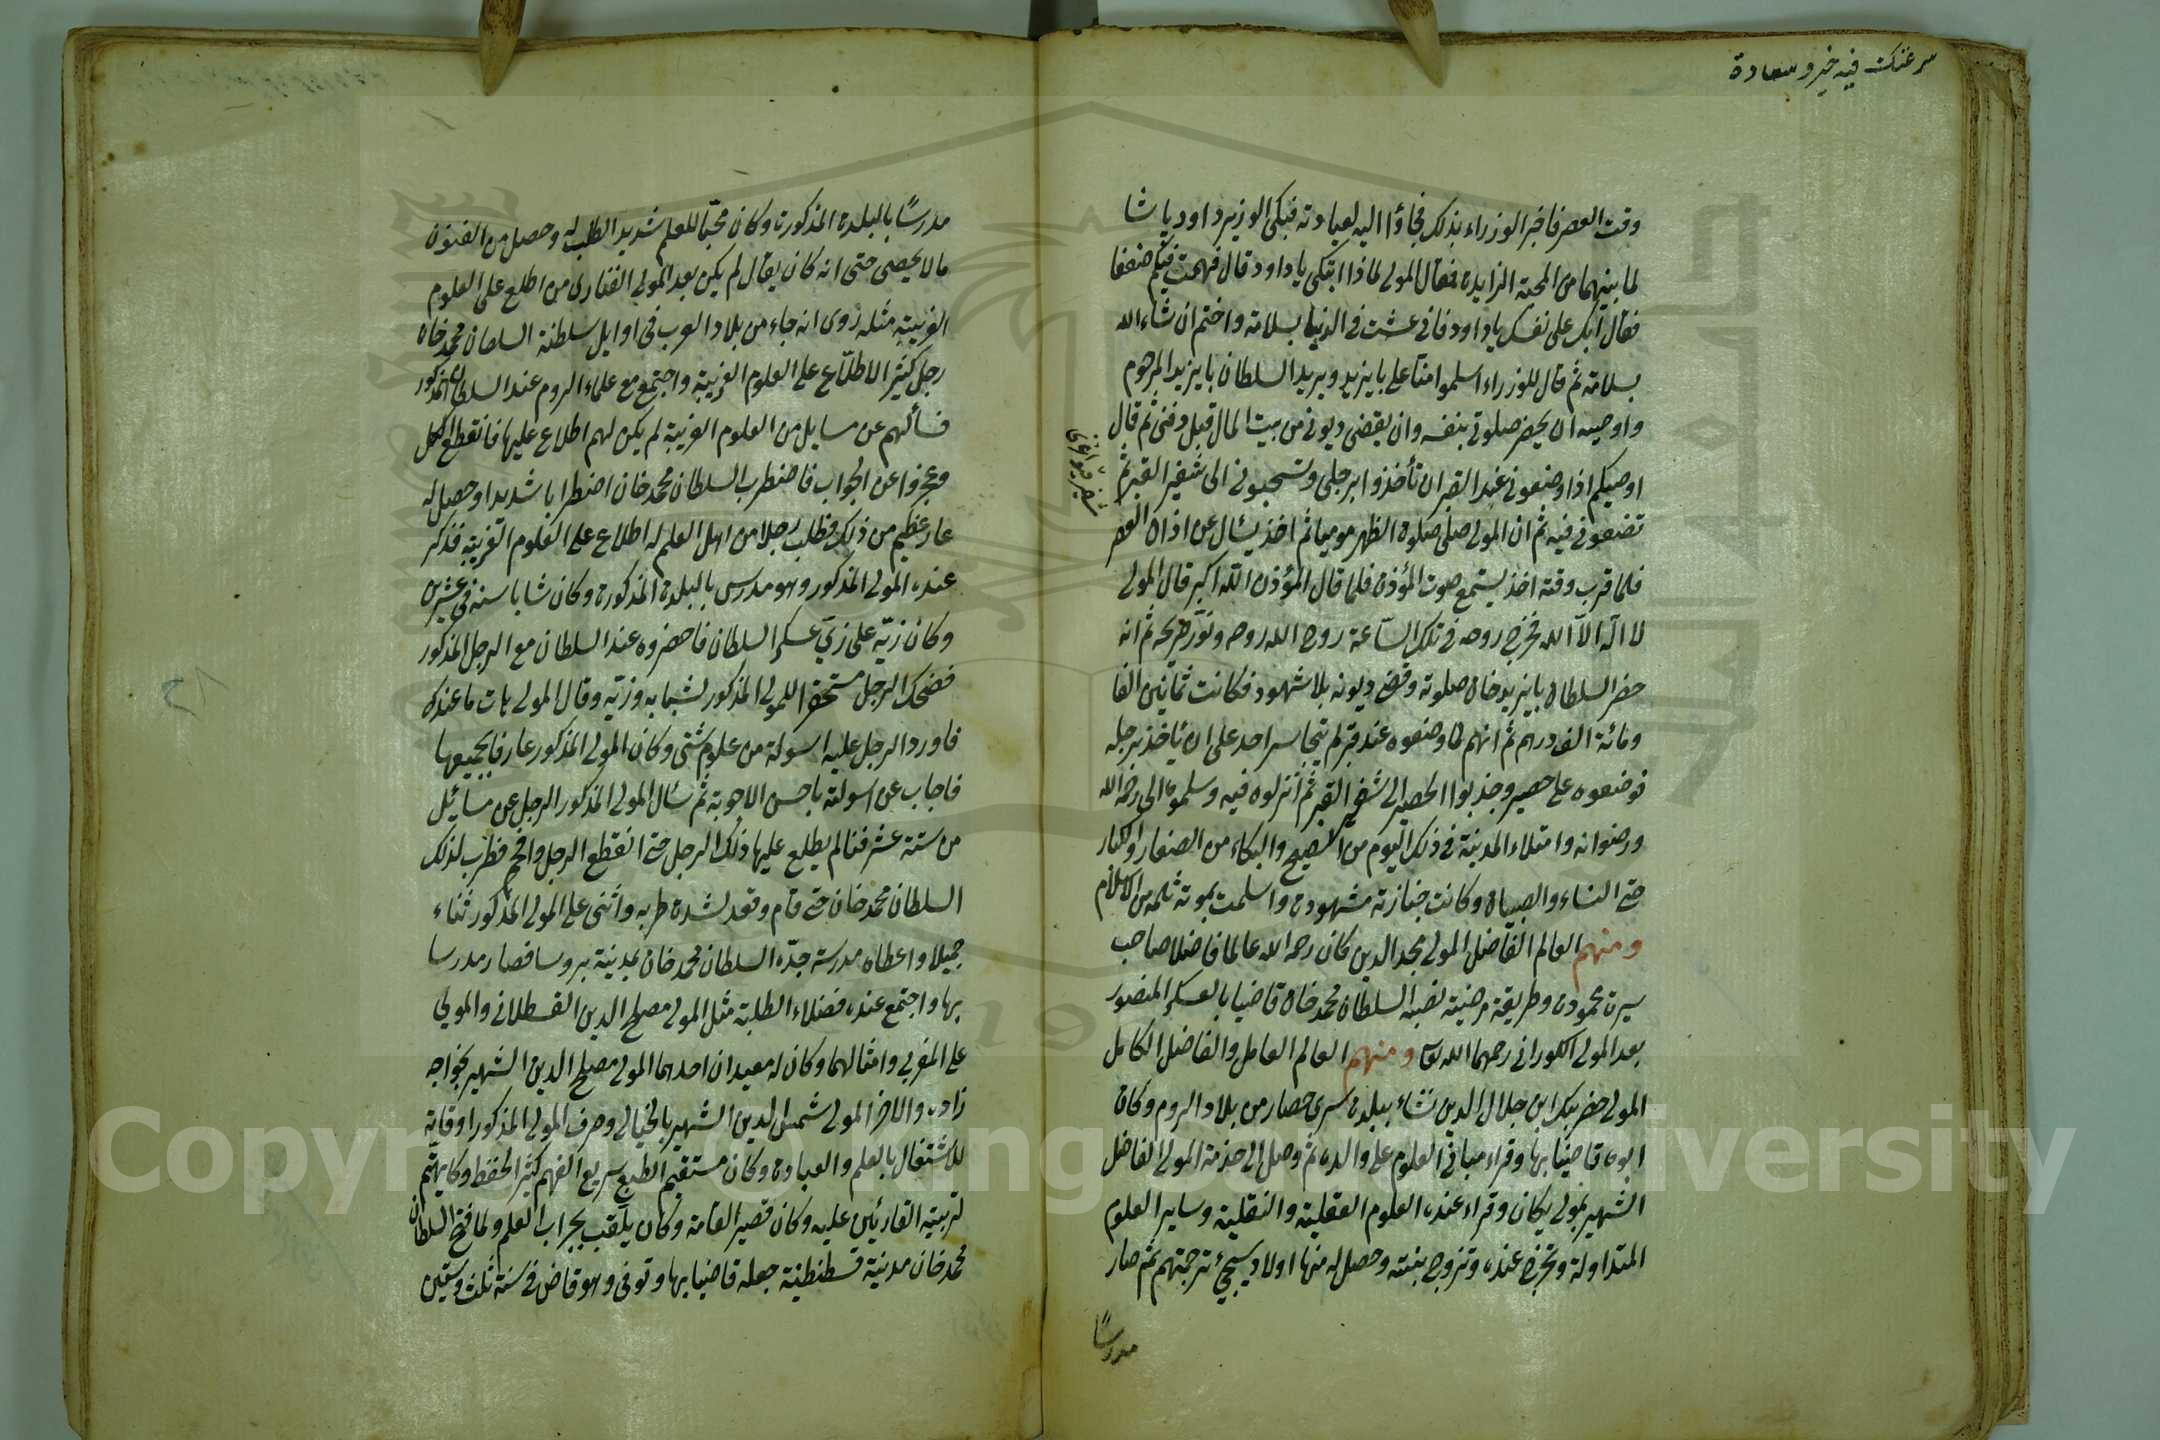 سر عنك فيه خير وسعادة
وقت العصر فاخبر الوزراء بذلك فجاؤا اليه لعيادته فبكى الوزير داود پاشا
لما بينهما من المحبة الزايدة فقال المولى لماذا تبكى يا داود قال فهمت فيكم ضعفا
فقال ابك على نفسك يا داود فانى عشت فى الدنيا بسلامة واختم ان شاء الله
بسلامة ثم قال للوزراء اسلموا منا على بايزيد ويريد السلطان بايزيد المرحوم
واوصيه ان يحضر صلوتى بنفسه وان يقضى ديونى من بيت المال قبل دفنى ثم قال
اوصيكم اذا وضعونى عند القبر ان تأخذوا برجلى وتسحبونى الى شفير القبر ثم
تضعونى فيه ثم ان المولى صلى صلوة الظهر موميا ثم اخذ يسئال عن اذان العصر
فلما قرب وقته اخذ يستمع صوت المؤذن فلما قال المؤذن الله اكبر قال المولى
لا اله الا الله فخرج روحه فى تلك الساعة روح الله روحه ونور ضريحه ثم انه
حضر السلطان بايزيد خان صلوته وقضى ديونه بلا شهود فكانت ثمانين الفا
ومائة الف درهم ثم انهم لما وضعوه عند قبره لم يتجاسر احد على ان يأخذ برجله
فوضعوه على حصير وجذبوا الحصير الى شفير القبر ثم انزلوه فيه وسلموه الى رحمة الله
ورضوانه وامتلاء المدينة فى ذلك اليوم من الضجيج والبكاء من الصغار والكبار
حتى النساء والصبيان وكانت جنازته مشهودة واسلمت بموته ثلمه من الاسلام
ومنهم العالم الفاضل المولى مجد الدين كان رحمه الله عالما فاضلا صاحب
سيرة محمودة وطريقة مرضية نصبه السلطان محمد خان قاضيا بالعسكر المنصور
بعد المولى الكورانى رحمهما الله تعا ومنهم العالم العامل والفاضل الكامل
المولى خضر بيك ابن جلال الدين نشاء ببلدة سرى حصار من بلاد الروم وكان
ابوه قاضيا بها وقراء مبانى العلوم على والده ثم وصل الى خدمة المولى الفاضل
الشهير بمولى يكان وقراء عنده العلوم العقلية والنقلية وساير العلوم
المتداولة وتخرج عنده وتزوج بنته وحصل له منها اولاد سيجئ ترجمتهم ثم صار
مدرسًا
مدرسًا بالبلدة المذكورة وكان محبا للعلم شديد الطلب له وحصل من الفنون
ما لا يحصى حتى انه كان يقال لم يكن بعد المولى الفنارى من اطلع على العلوم
الغريبة مثله روى انه جاء من بلاد العرب فى اوايل سلطنة السلطان محمد خان
رجل كثير الاطلاع على العلوم الغريبة واجتمع مع علماء الروم عند السلطان المذكور
فسألهم عن مسايل من العلوم الغريبة لم يكن لهم اطلاع عليها فانقطع الكل
وعجزوا عن الجواب فاضطرب السلطان محمد خان اضطرابا شديدا وحصل له
عار عظيم من ذلك فطلب رجلا من اهل العلم له اطلاع على العلوم الغريبة فذكر
عنده المولى المذكور وهو مدرس بالبلدة المذكورة وكان شابا سنه فى عشرين
وكان زيه على زى عسكر السلطان فاحضروه عند السلطان مع الرجل المذكور
فضحك الرجل مستحقرا للمولى المذكور لشبابه وزيه وقال المولى هات ما عندك
فاورد الرجل عليه اسولة من علوم شتى وكان المولى المذكور عارفا بجميعها
فاجاب عن اسولته باحسن الاجوبة ثم سئال المولى المذكور الرجل عن مسائيل
من ستة عشر فنا لم يطلع عليها ذلك الرجل حتى انقطع الرجل وافحم فطرب لذلك
السلطان محمد خان حتى قام وقعد لشدة طربه واثنى على المولى المذكور ثناء
جميلا واعطاه مدرسة جده السلطان محمد خان بمدينة بروسا فصار مدرسا
بها واجتمع عنده فضلاء الطلبة مثل المولى مصلح الدين القسطلانى والمولى
على العربى وامثالهما وكان له معيدان احدهما المولى مصلح الدين الشهير بخواجه
زاده والاخر المولى شمس الدين الشهير بالخيالى وصرف المولى المذكور اوقاته
للاشتغال بالعلم والعبادة وكان مستقيم الطبع سريع الفهم كثير الحفظ وكان يهتم
لتربية القارئين عليه وكان قصير القامة وكان يلقب بجراب العلم ولما فتح السلطان
محمد خان مدينة قسطنطنية جعله قاضيا بها وتوفى وهو قاض فى سنة ثلث وستين
Copyright © King Saud University